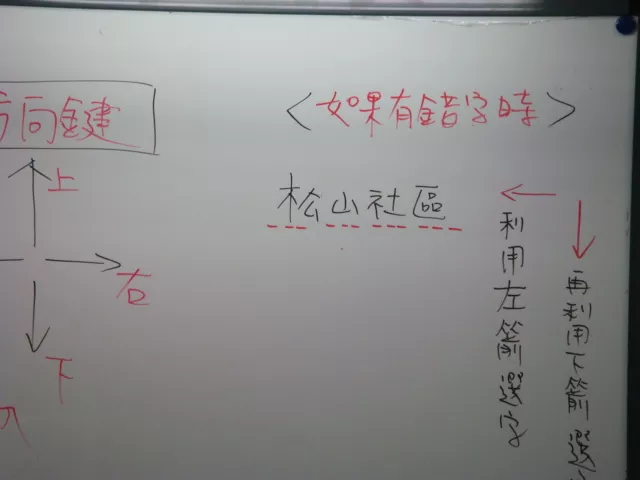 方向鍵
上
右
下
<如果有錯字時>
松山社區
利用左箭選字
再利用下箭選